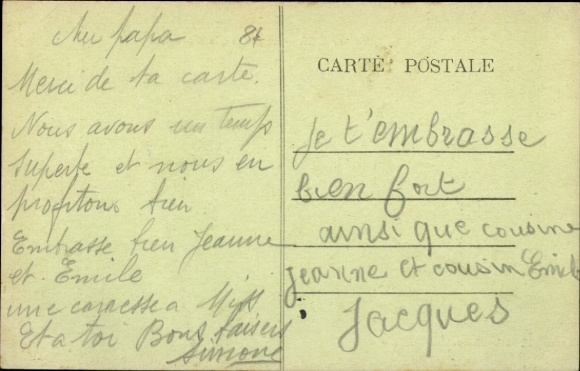 Au papa 84
Merci de ta carte.
Nous avons un temps
superbe et nous en
profitons bien
Embrasse bien Jeanne
et Emile
une caresse a Miss
Et a toi Bons baisers
Simone
CARTE POSTALE
je t'embrasse
bien fort
ainsi que cousine
jeanne et cousin Emile
Jacques